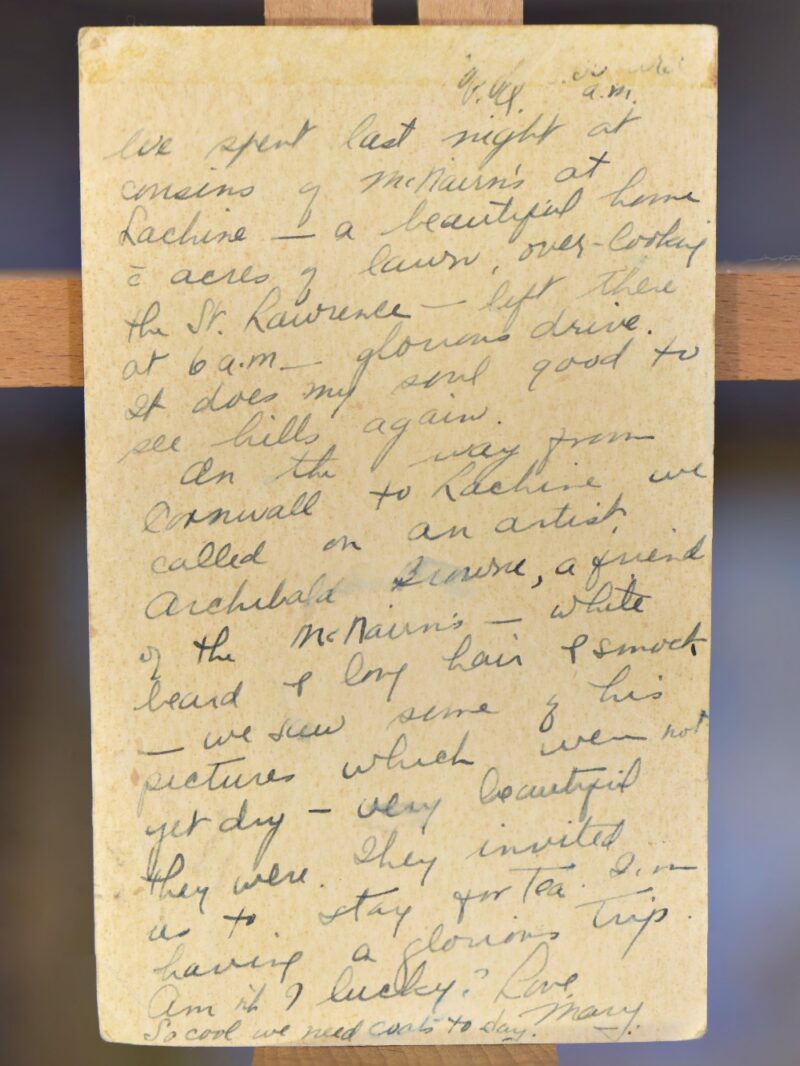 a.m.
We spent last night at
cousins of McNairn's at
Lachine — a beautiful home
c̄ acres of lawn, over-looking
the St. Lawrence — left there
at 6 a.m — glorious drive.
It does my soul good to
see hills again.
On the way from
Cornwall to Lachine we
called on an artist
Archibald Browne, a friend
of the McNairn's — white
beard & long hair & smock
— we saw some of his
pictures which were not
yet dry — very beautiful
they were. They invited
us to stay for Tea. I'm
having a glorious trip.
Am I lucky? Love,
So cool we need coats to day. Mary.